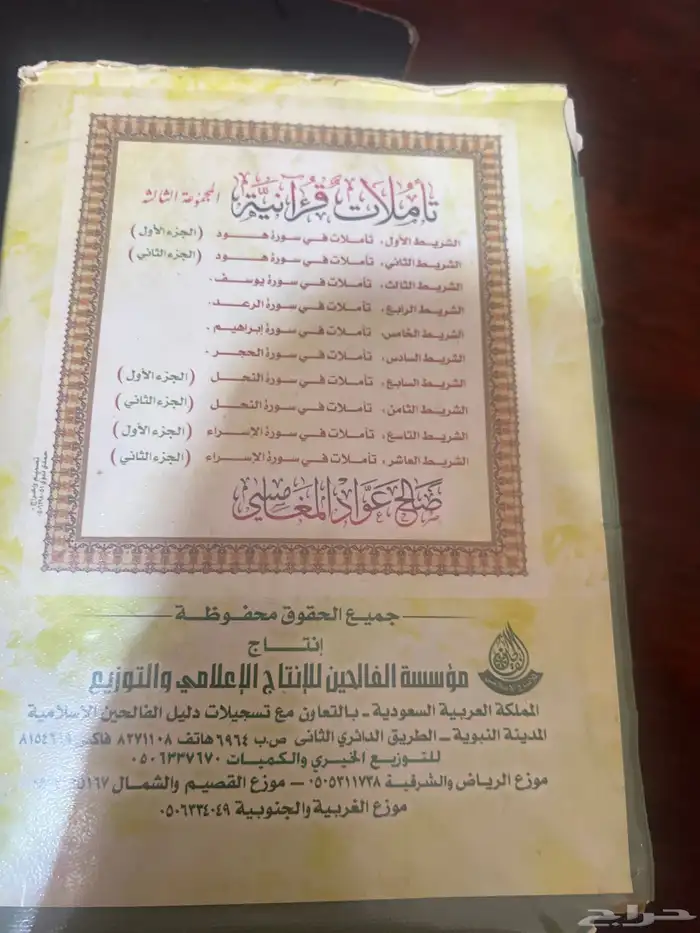 تأملات قرآنية المجموعة الثالثة
الشريط الأول، تأملات في سورة هود (الجزء الأول)
الشريط الثاني، تأملات في سورة هود (الجزء الثاني)
الشريط الثالث، تأملات في سورة يوسف.
الشريط الرابع، تأملات في سورة الرعد.
الشريط الخامس، تأملات في سورة إبراهيم.
الشريط السادس، تأملات في سورة الحجر.
الشريط السابع، تأملات في سورة النحل (الجزء الأول)
الشريط الثامن، تأملات في سورة النحل (الجزء الثاني)
الشريط التاسع، تأملات في سورة الإسراء (الجزء الأول)
الشريط العاشر، تأملات في سورة الإسراء (الجزء الثاني)
صالح عواد المغامسي
جميع الحقوق محفوظة
إنتاج
مؤسسة الفالحين للإنتاج الإعلامي والتوزيع
المملكة العربية السعودية - بالتعاون مع تسجيلات دليل الفالحين الاسلامية
المدينة النبوية - الطريق الدائري الثانى ص.ب ٦٩٦٤ هاتف ٨٢٧١١٠٨ فاكس
للتوزيع الخيري والكميات ٠٥٠٦٣٣٧٦٧٠
موزع الرياض والشرقية ٠٥٠٥٣١١٧٣٨ - موزع القصيم والشمال
موزع الغربية والجنوبية ٠٥٠٦٣٣٤٠٤٩
حراج